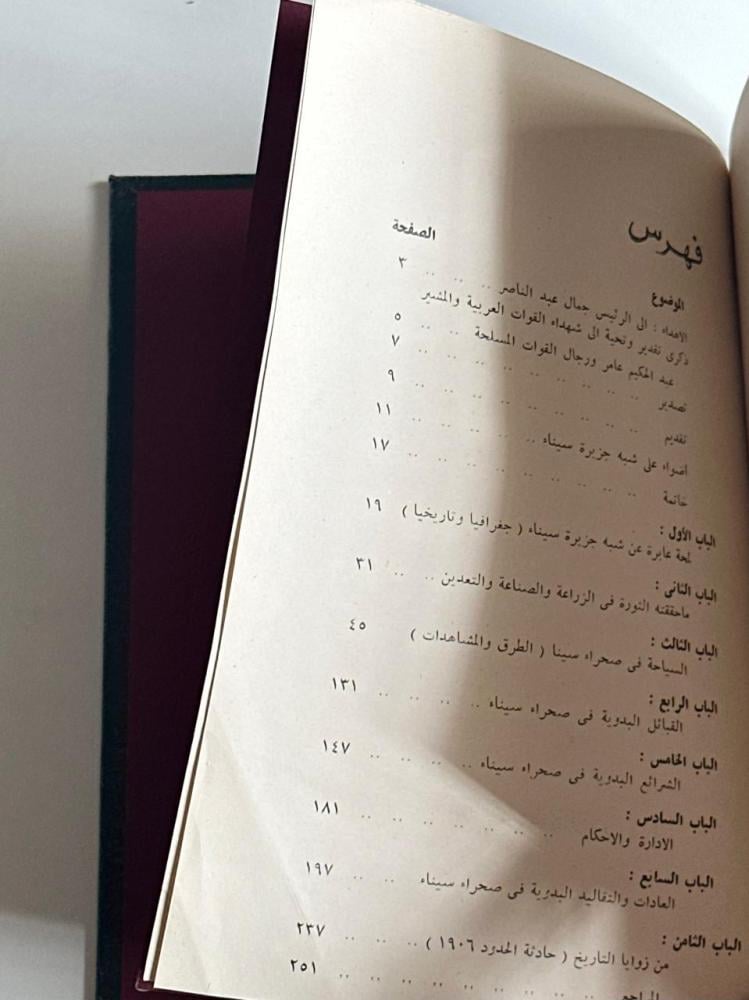 فهرس
الموضوع الصفحة
الاهداء : الى الرئيس جمال عبد الناصر .. .. .. ٣
ذكرى تقدير وتحية الى شهداء القوات العربية والمشير
عبد الحكيم عامر ورجال القوات المسلحة .. .. ٥
تصدير .. .. .. .. .. .. .. ٧
تقديم .. .. .. .. .. .. .. ٩
اضواء على شبه جزيرة سيناء .. .. .. .. ١١
خاتمة .. .. .. .. .. .. .. ١٧
الباب الأول :
لمحة عابرة عن شبه جزيرة سيناء ( جغرافيا وتاريخيا ) ١٩
الباب الثانى :
ماحققته الثورة فى الزراعة والصناعة والتعدين .. .. ٣١
الباب الثالث :
السياحة فى صحراء سينا ( الطرق والمشاهدات ) ٤٥
الباب الرابع :
القبائل البدوية فى صحراء سيناء .. .. .. .. ١٣١
الباب الخامس :
الشرائع البدوية فى صحراء سيناء .. .. .. .. ١٤٧
الباب السادس :
الادارة والاحكام .. .. .. .. .. .. .. ١٨١
الباب السابع :
العادات والتقاليد البدوية فى صحراء سيناء .. .. .. ١٩٧
الباب الثامن :
من زوايا التاريخ ( حادثة الحدود ١٩٠٦ ) .. .. .. ٢٣٧
.. .. .. .. .. .. .. ٢٥١